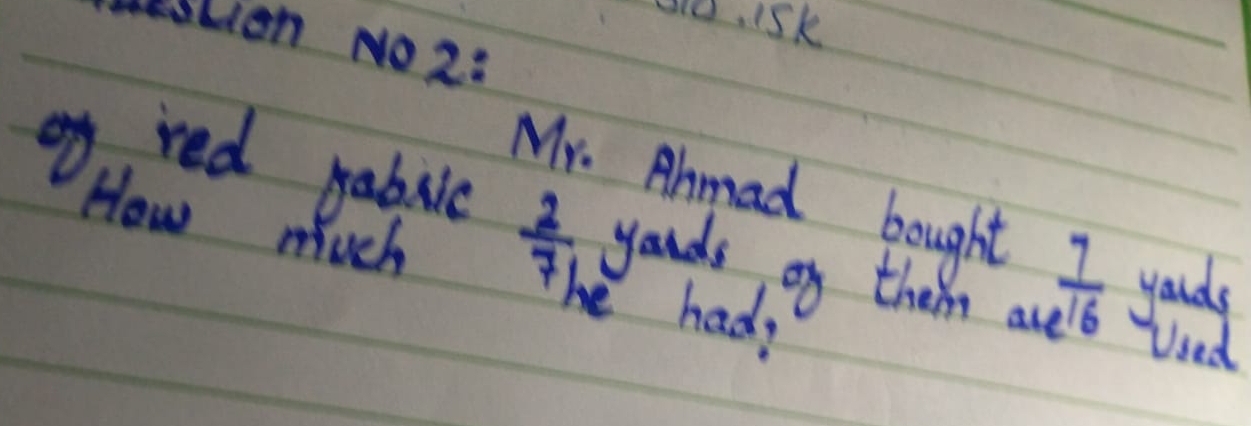 NO 2:
Mr. Ahmad bought 7/16 yards
of red fabric 2/7 yards of them are Used
How much he had?